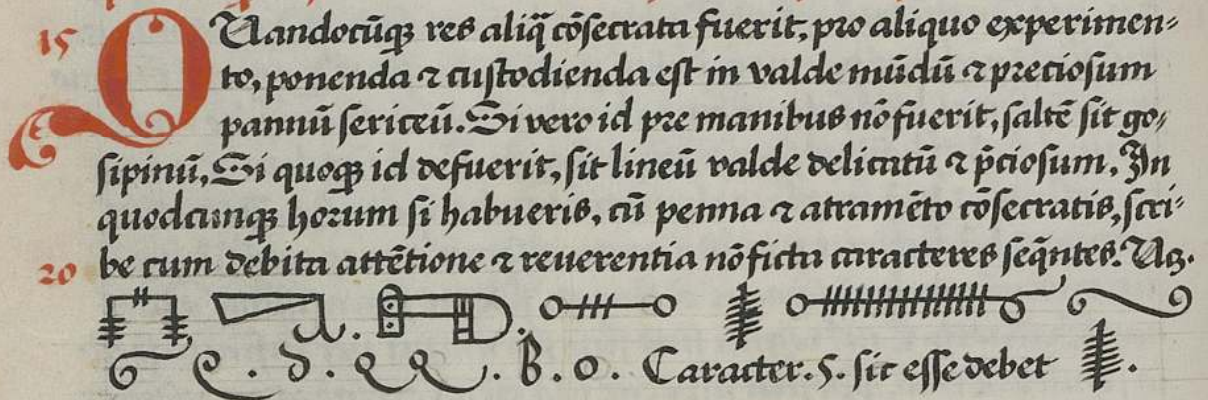 15 QUandocūqꝫ res aliq̄ cōsecrata fuerit, pro aliquo experimen⸗
to, ponenda ⁊ custodienda est in valde mūdū ⁊ preciosum
pannū sericeū. Si vero id pre manibus nō fuerit, saltē sit go⸗
sipinū, Si quoqꝫ id defuerit, sit lineū valde delicatū ⁊ p̄ciosum. In
quodcunqꝫ horum si habueris, cū penna ⁊ atramēto cōsecratis, scri⸗
20 be cum debita attētione ⁊ reuerentia nō ficta caracteres seq̄ntes. Uꝫ.
B. o. Caracter. 5. sic esse debet